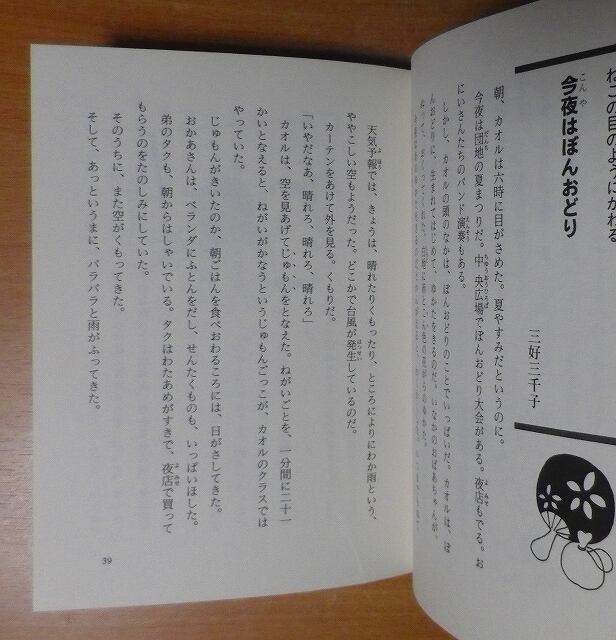 ねこの目のようにかわる
今夜はぼんおどり
こんや
三好三千子
朝、カオルは六時に目がさめた。夏やすみだというのに。
今夜は団地の夏まつりだ。中央広場でぼんおどり大会がある。夜店もでる。お
にいさんたちのバンド演奏もある。
しかし、カオルの頭のなかは、ぼんおどりのことでいっぱいだ。カオルは、ぼ
んおどりに、生まれてはじめて、ゆかたをきるのだ。いなかのおばあちゃんが、
天気予報では、きょうは、晴れたりくもったり、ところによりにわか雨という、
ややこしい空もようだった。どこかで台風が発生しているのだ。
カーテンをあけて外を見る。くもりだ。
「いやだなあ、晴れろ、晴れろ、晴れろ」
カオルは、空を見あげてじゅもんをとなえた。ねがいごとを、一分間に二十一
かいとなえると、ねがいがかなうというじゅもんごっこが、カオルのクラスでは
やっていた。
じゅもんがきいたのか、朝ごはんを食べおわるころには、日がさしてきた。
おかあさんは、ベランダにふとんをだし、せんたくものも、いっぱいほした。
弟のタクも、朝からはしゃいでいる。タクはわたあめがすきで、夜店で買って
もらうのをたのしみにしていた。
そのうちに、また空がくもってきた。
そして、あっというまに、バラバラと雨がふってきた。
39